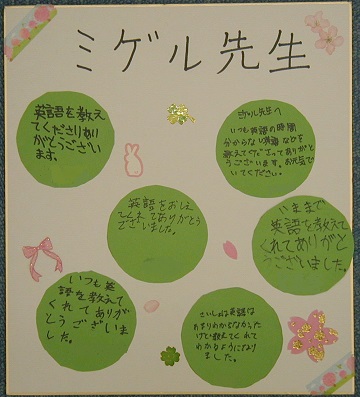 ミゲル先生
英語を教え
てくださりあり
がとうござい
ます。
ミゲル先生へ
いつも英語の時間
分からない英語などを
教えて下さってありがと
うございます。お元気で
いてください。
英語をおしえ
てくれてありがとう
ございました。
いままで
英語を教えて
くれてありがと
うございました。
いつも英
語を教えて
くれてありが
とうございま
した。
さいしょは英語は
あまりわからなかった
けど教えてくれて
わかるようになり
ました。